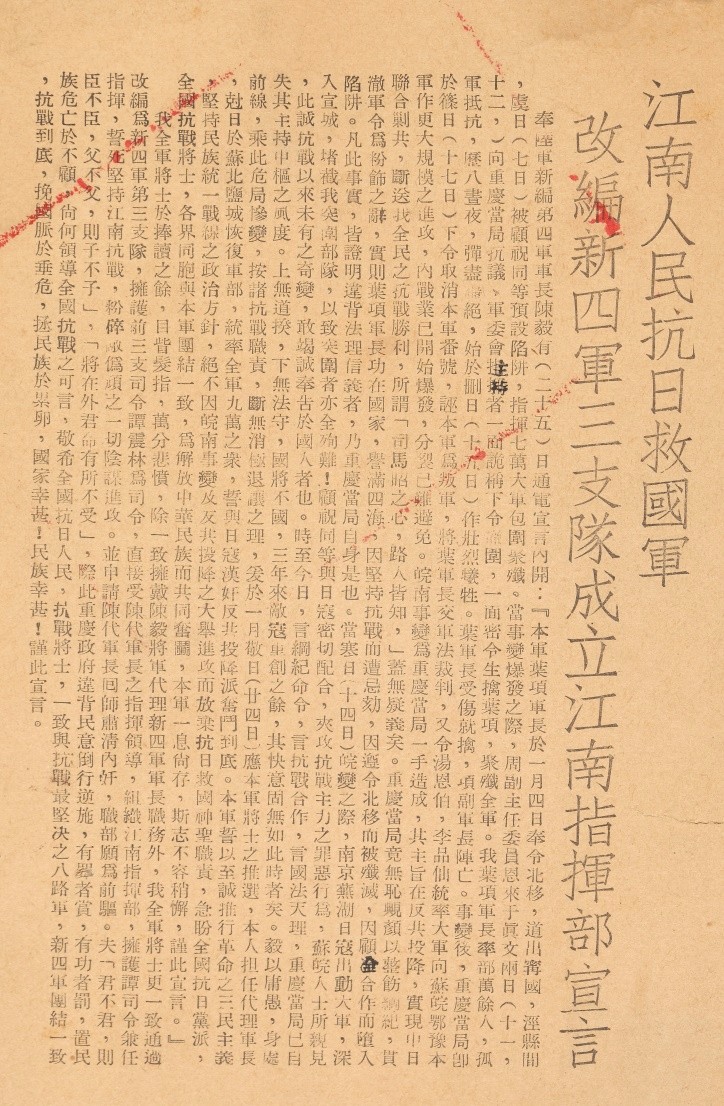 江南人民抗日救國軍
改編新四軍三支隊成立江南指揮部宣言
奉陸軍新編第四軍軍長陳毅有(二十五)日通電宣言內開：『本軍葉項軍長於一月四日奉令北移，道出寗國，涇縣間
，虞日(七日)被顧祝同等預設陷阱，指揮七萬大軍包圍聚殲。當事變爆發之際，周副主任委員恩來于眞文兩日(十一，
十二，)向重慶當局抗議，軍委會主持者一面詭稱下令圍，一面密令生擒葉項，聚殲全軍。我葉項軍長率部萬餘人，孤
軍抵抗，歷八晝夜，彈盡絕，始於刪日(十五日)作壯烈犧牲。葉軍長受傷就擒，項副軍長陣亡。事變後，重慶當局卽
於篠日(十七日)下令取消本軍番號，誣本軍爲叛軍，將葉軍長交軍法裁判，又令湯恩伯，李品仙統率大軍向蘇皖鄂豫本
軍作更大規模之進攻，內戰業已開始爆發，分裂已難避免。皖南事變爲重慶當局一手造成，其主旨在反共投降，實現中日
聯合剿共，斷送我全民之抗戰勝利，所謂「司馬昭之心，路人皆知，」蓋無疑義矣。重慶當局竟無恥靦顏以整飭綱紀，貫
澈軍令爲粉飾之辭，實則葉項軍長功在國家，譽滿四海，因堅持抗戰而遭忌刻，因遵令北移而被殲滅，因顧全合作而墮入
陷阱。凡此事實，皆證明違背法理信義者，乃重慶當局自身是也。當寒日(十四日)皖變之際，南京蕪湖日寇出動大軍，深
入宣城，堵截我突圍部隊，以致突圍者亦全殉難！顧祝同等與日寇密切配合，夾攻抗戰主力之罪惡行爲，蘇皖人士所親見
，此誠抗戰以來未有之奇變，敢竭誠奉告於國人者也。時至今日，言綱紀命令，言抗戰合作，言國法天理，重慶當局已自
失其主持中樞之風度。上無道揆，下無法守，國將不國，三年來敵寇重創之餘，其快意固無如此時者矣。毅以庸愚，身處
前線，乘此危局慘變，按諸抗戰職責，斷無消極退讓之理，爰於一月敬日(廿四日)應本軍將士之推選，本人担任代理軍長
，尅日於蘇北鹽城恢復軍部，統率全軍九萬之衆，誓與日寇漢奸反共投降派奮鬥到底。本軍誓以至誠推行革命之三民主義
，堅持民族統一戰線之政治方針，絕不因皖南事變及反共投降之大舉進攻而放棄抗日救國神聖職責，急盼全國抗日黨派，
全國抗戰將士，各界同胞與本軍團結一致，爲解放中華民族而共同奮鬬，本軍一息尙存，斯志不容稍懈，謹此宣言。』
我全軍將士於捧讀之餘，目眥髮指，萬分悲憤，除一致擁戴陳毅將軍代理新四軍軍長職務外，我全軍將士更一致通過
改編爲新四軍第三支隊，擁護前三支司令譚震林爲司令，直接受陳代軍長之指揮領導，組織江南指揮部，擁護譚司令兼任
指揮，誓死堅持江南抗戰，粉碎敵僞頑之一切陰謀進攻。並申請陳代軍長囘師肅清內奸，職部願爲前驅。夫「君不君，則
臣不臣，父不父，則子不子」，「將在外君命有所不受」，際此重慶政府違背民意倒行逆施，有罪者賞，有功者罰，置民
族危亡於不顧，尙何領導全國抗戰之可言，敬希全國抗日人民，抗戰將士，一致與抗戰最堅决之八路軍，新四軍團結一致
，抗戰到底，挽國脈於垂危，拯民族於累卵，國家幸甚！民族幸甚！謹此宣言。